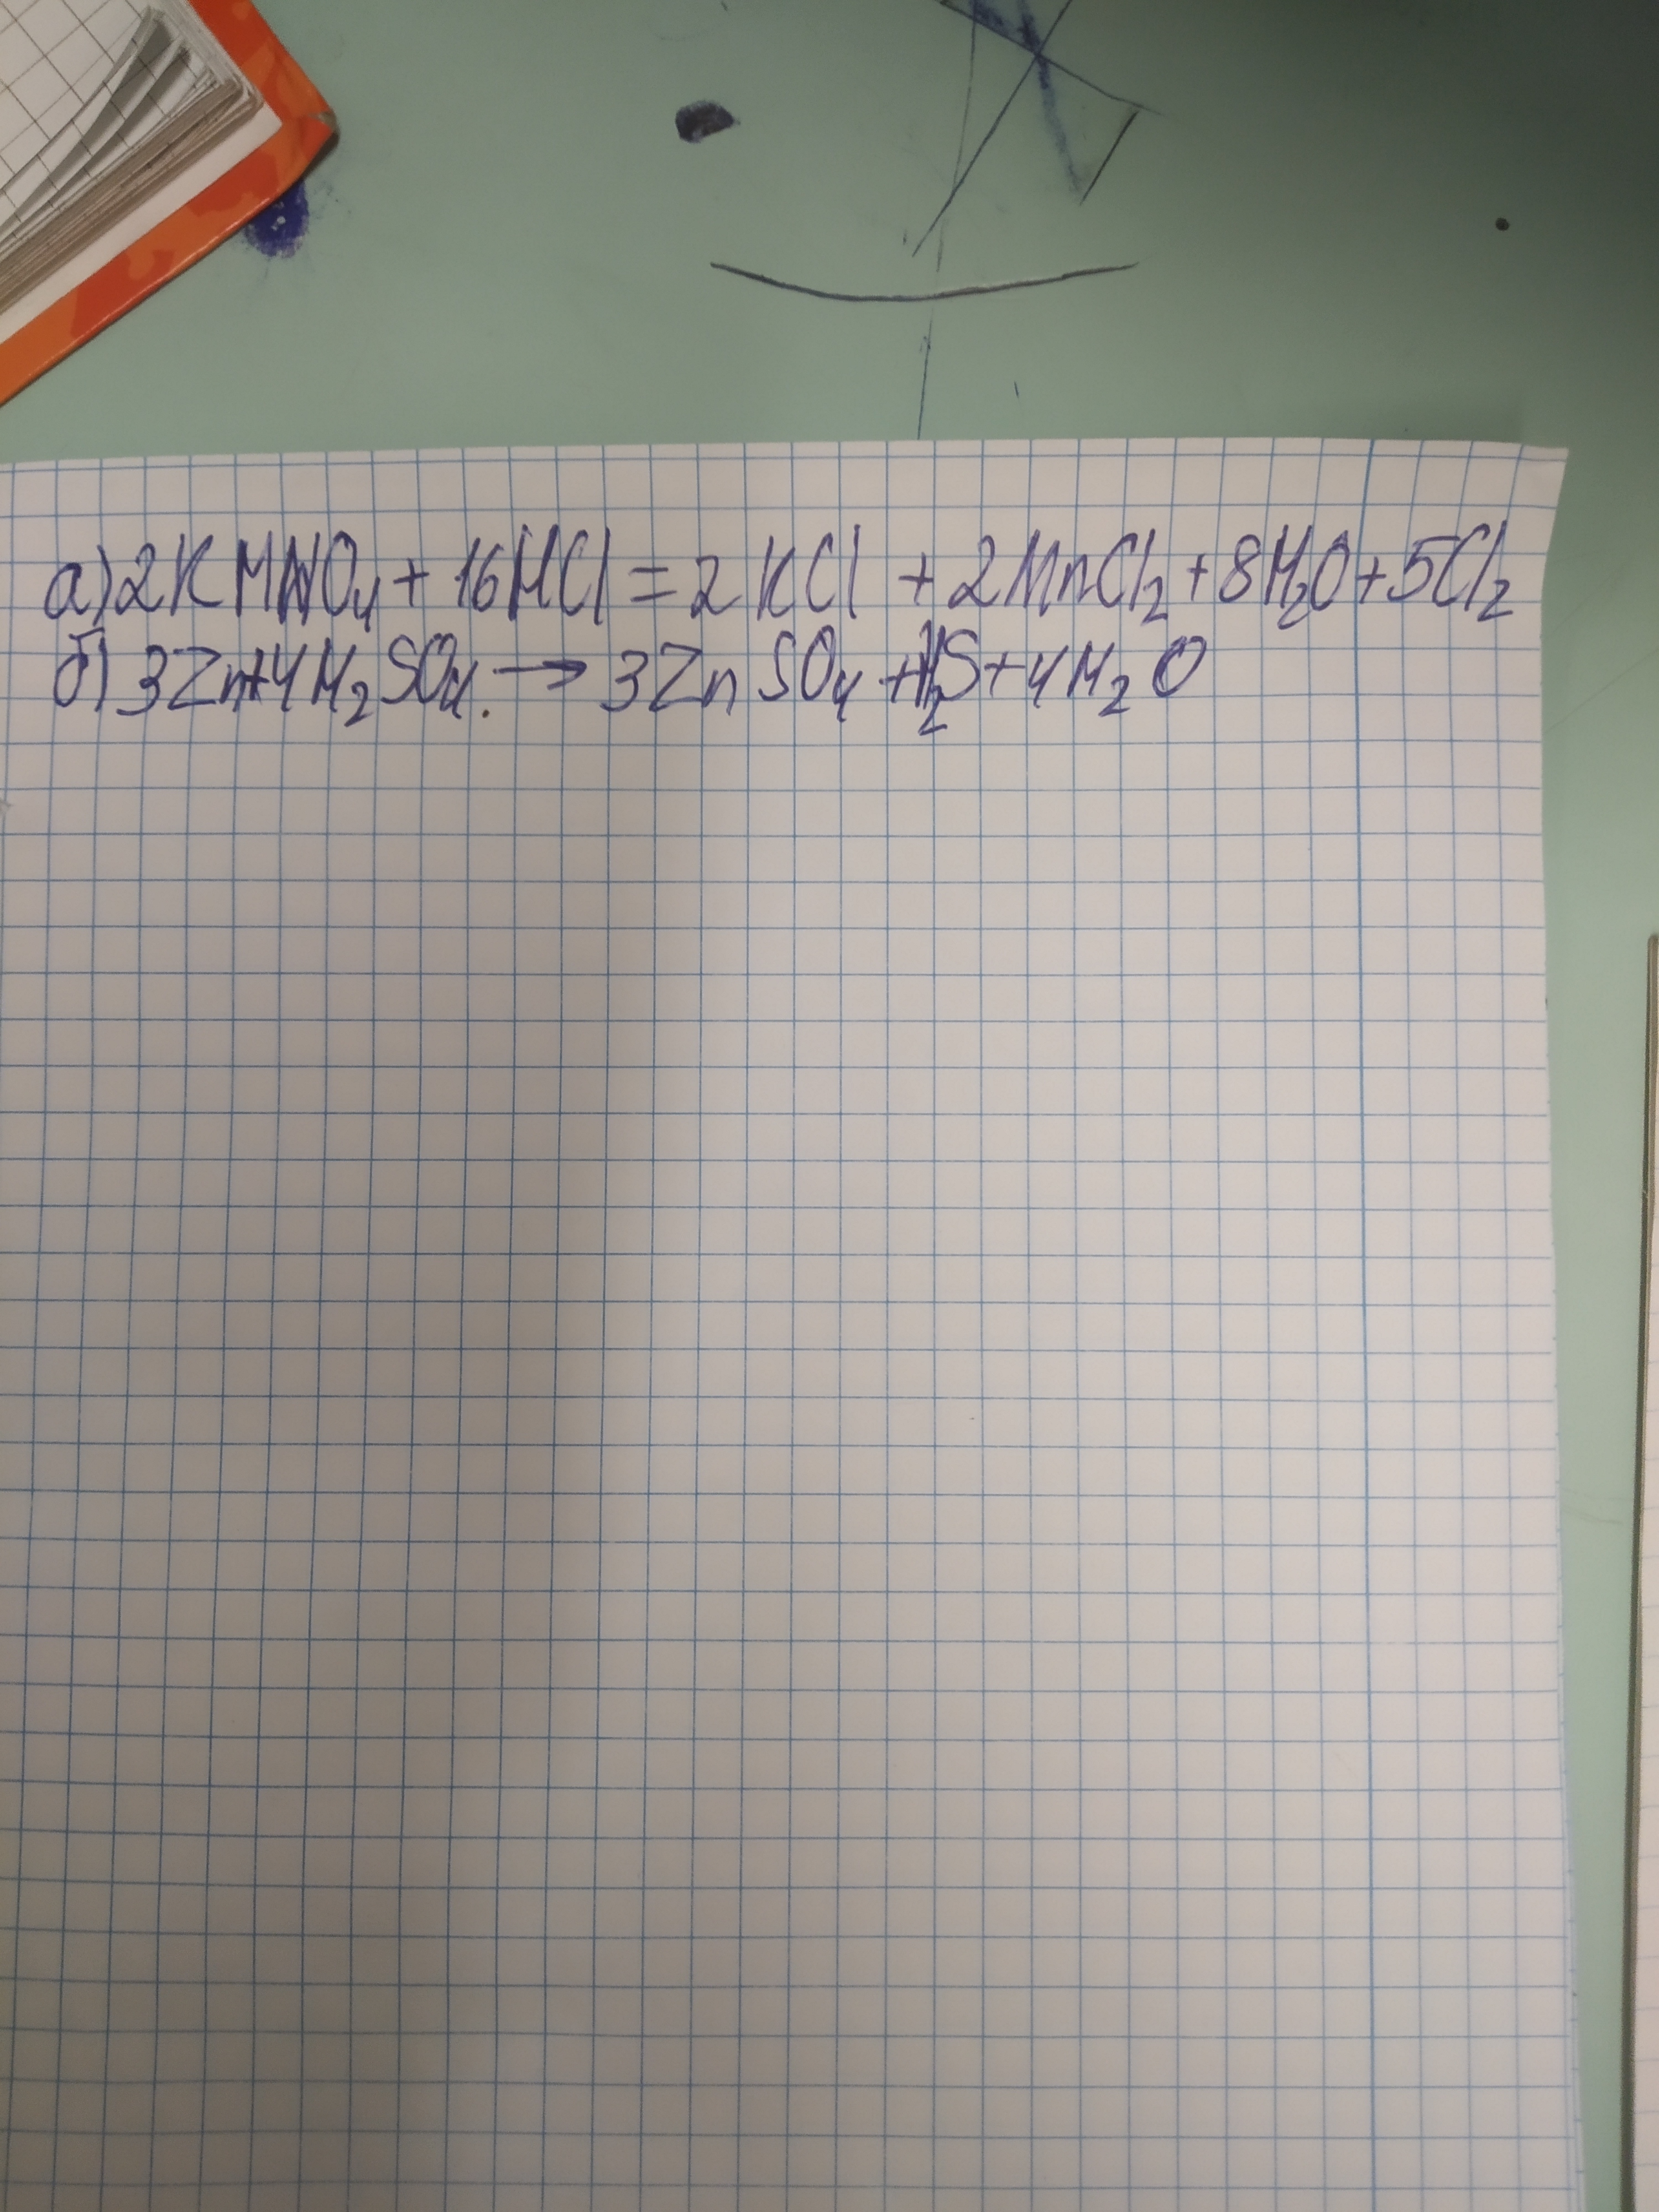 а) 2KMnO₄ + 16HCl = 2KCl + 2MnCl₂ + 8H₂O + 5Cl₂
б) 3Zn + 4H₂SO₄. → 3ZnSO₄ + H₂S + 4H₂O